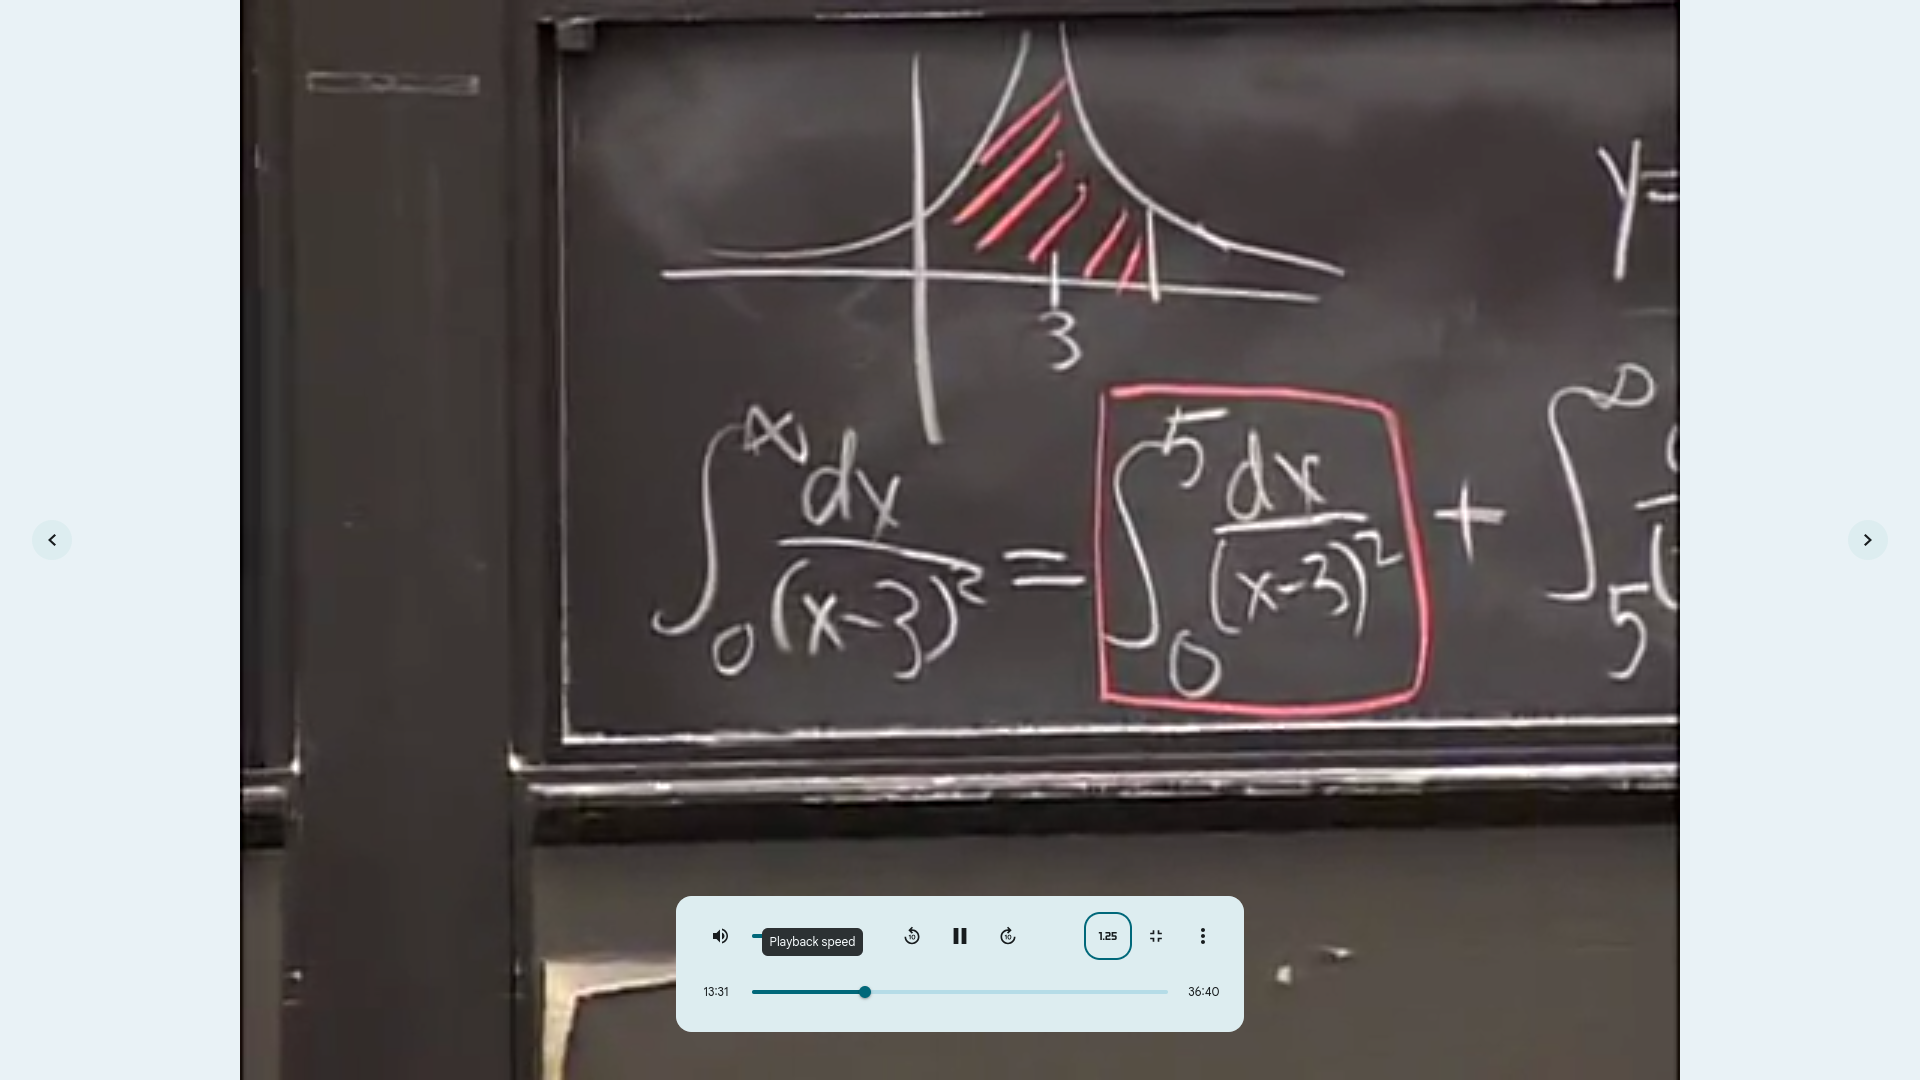 y=
3
∫₀^∞ dx/(x-3)² = ∫₀⁵ dx/(x-3)² + ∫₅^∞
Playback speed
10
10
1.25
13:31
36:40